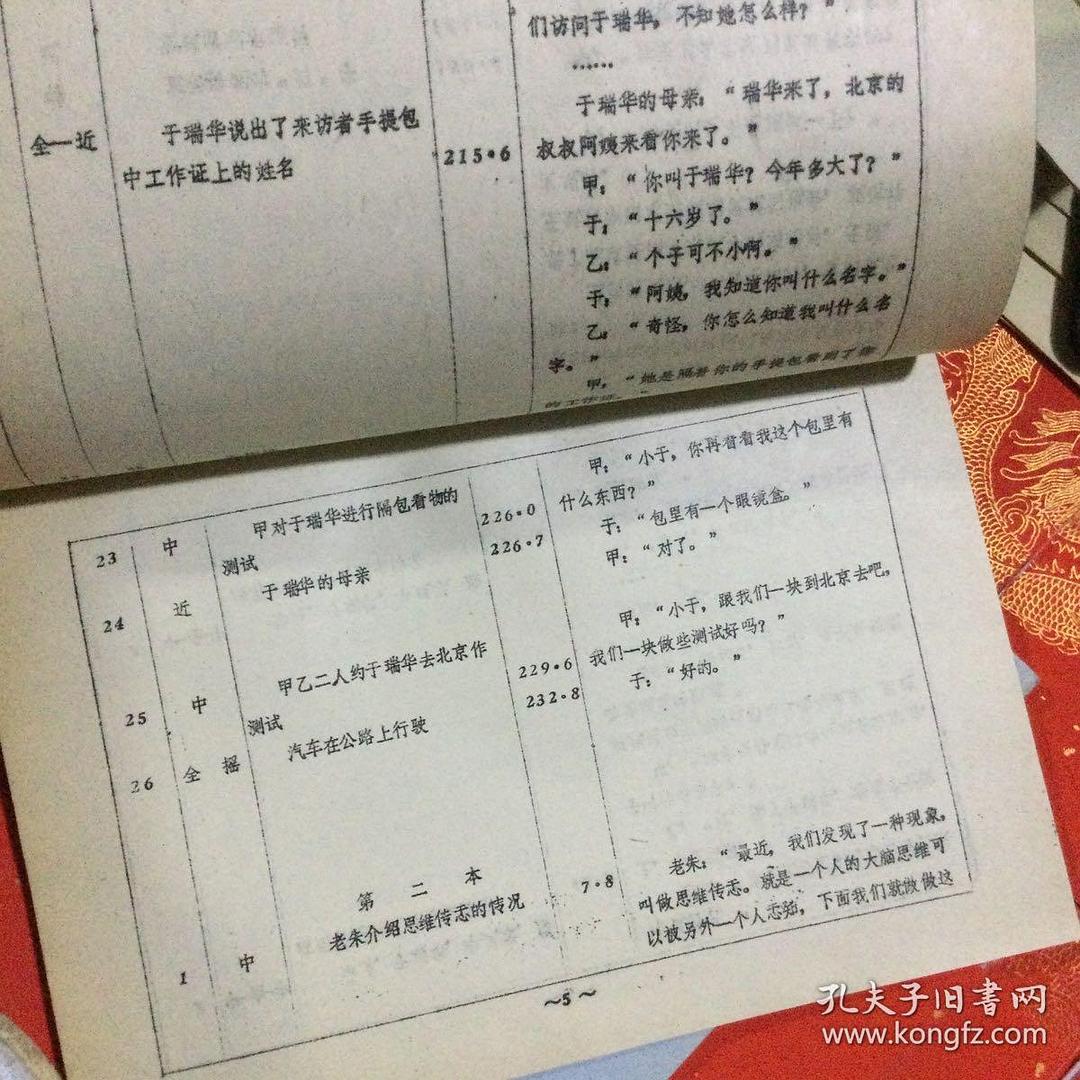 们访问于瑞华，不知她怎么样？”
……
全—近
于瑞华说出了来访者手提包
中工作证上的姓名
215·6
于瑞华的母亲：“瑞华来了，北京的
叔叔阿姨来看你来了。”
甲：“你叫于瑞华？今年多大了？”
于：“十六岁了。”
乙：“个子可不小啊。”
于：“阿姨，我知道你叫什么名字。”
乙：“奇怪，你怎么知道我叫什么名
字。”
甲：“她是隔着你的手提包看到了你
的工作证。”
23 中
甲对于瑞华进行隔包看物的
测试
226·0
甲：“小于，你再看看我这个包里有
什么东西？”
于：“包里有一个眼镜盒。”
24 近
于瑞华的母亲
226·7
甲：“对了。”
25 中
甲乙二人约于瑞华去北京作
测试
229·6
甲：“小于，跟我们一块到北京去吧，
我们一块做些测试好吗？”
于：“好的。”
26 全 摇
汽车在公路上行驶
232·8
第 二 本
1 中
老朱介绍思维传态的情况
7·8
老朱：“最近，我们发现了一种现象，
叫做思维传态。就是一个人的大脑思维可
以被另外一个人态知，下面我们就做做这
～5～
孔夫子旧書网
www.kongfz.com